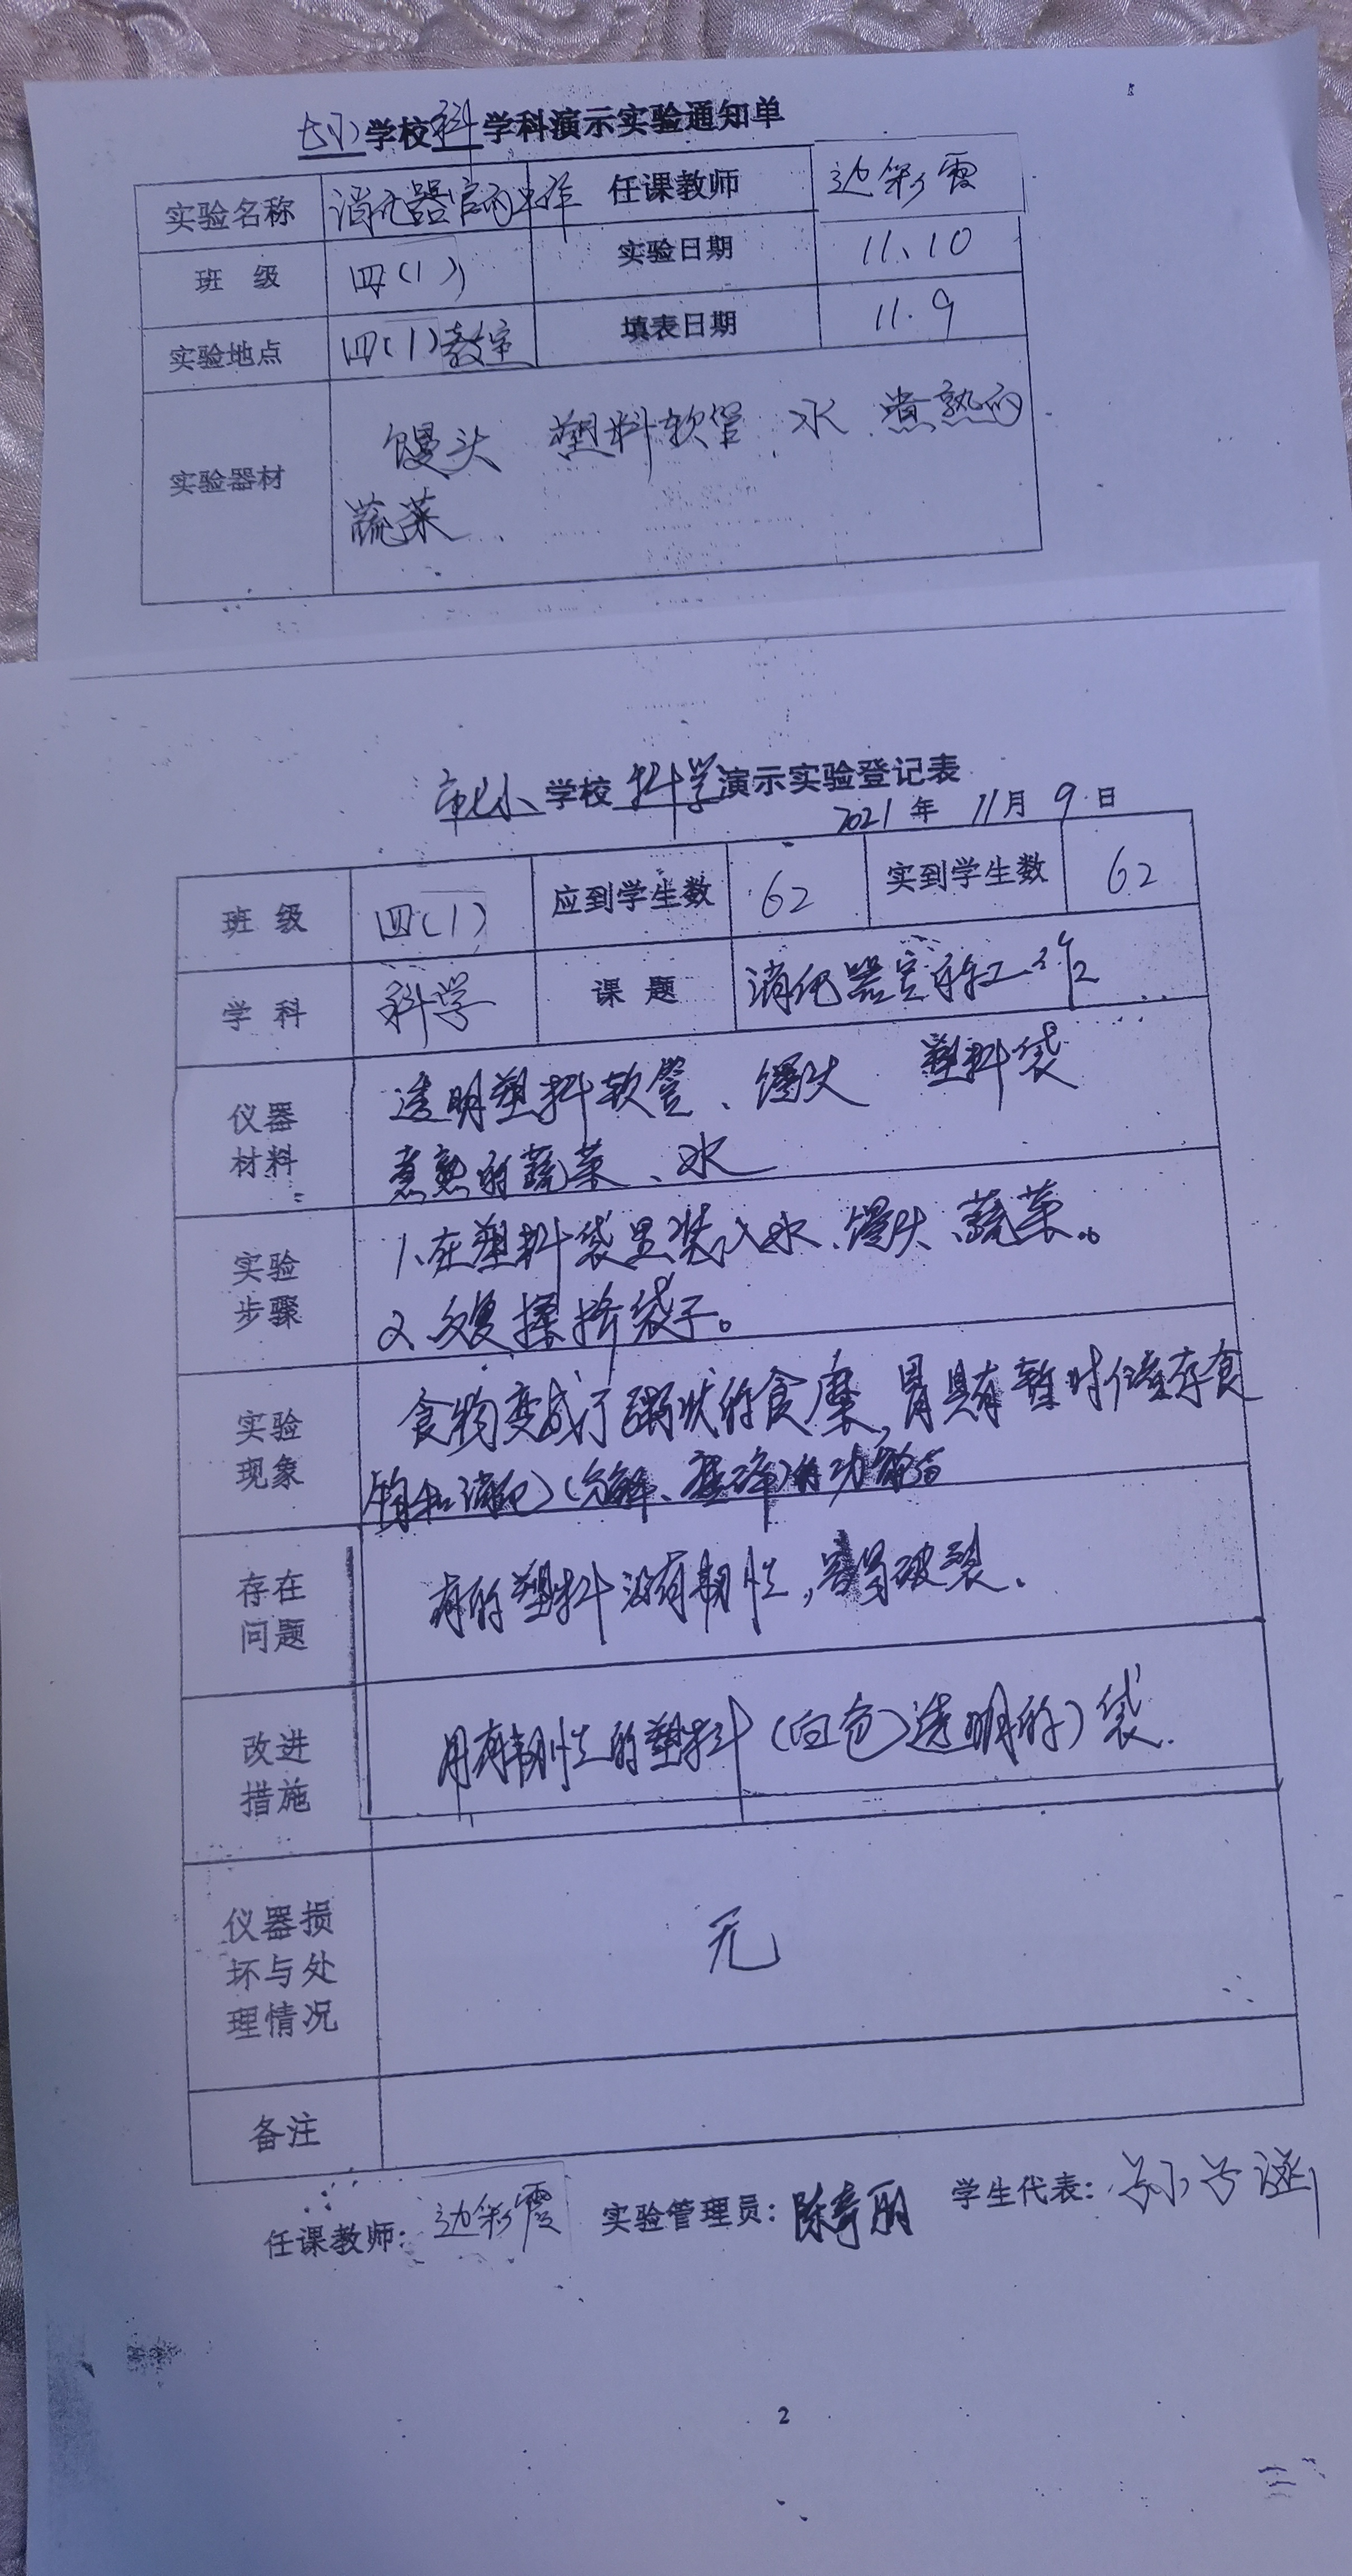 七小学校科学科演示实验通知单
实验名称 消化器官的工作 任课教师 边彩霞
班 级 四(1) 实验日期 11、10
实验地点 四(1)教室 填表日期 11.9
实验器材 馒头 塑料软管 水 煮熟的
蔬菜
市七小学校科学演示实验登记表
2021年 11月 9日
班 级 四(1) 应到学生数 62 实到学生数 62
学 科 科学 课 题 消化器官的工作
仪器
材料
透明塑料软管、馒头 塑料袋
煮熟的蔬菜、水
实验
步骤
1.在塑料袋里装入水、馒头、蔬菜。
2、反复揉挤袋子。
实验
现象
食物变成了粥状的食糜,胃具有暂时储存食
物和消化(分解、磨碎)的功能。
存在
问题
有的塑料没有韧性,容易破裂.
改进
措施
用有韧性的塑料(白色透明的)袋.
仪器损
坏与处
理情况
无
备注
任课教师: 边彩霞 实验管理员: 学生代表:
2